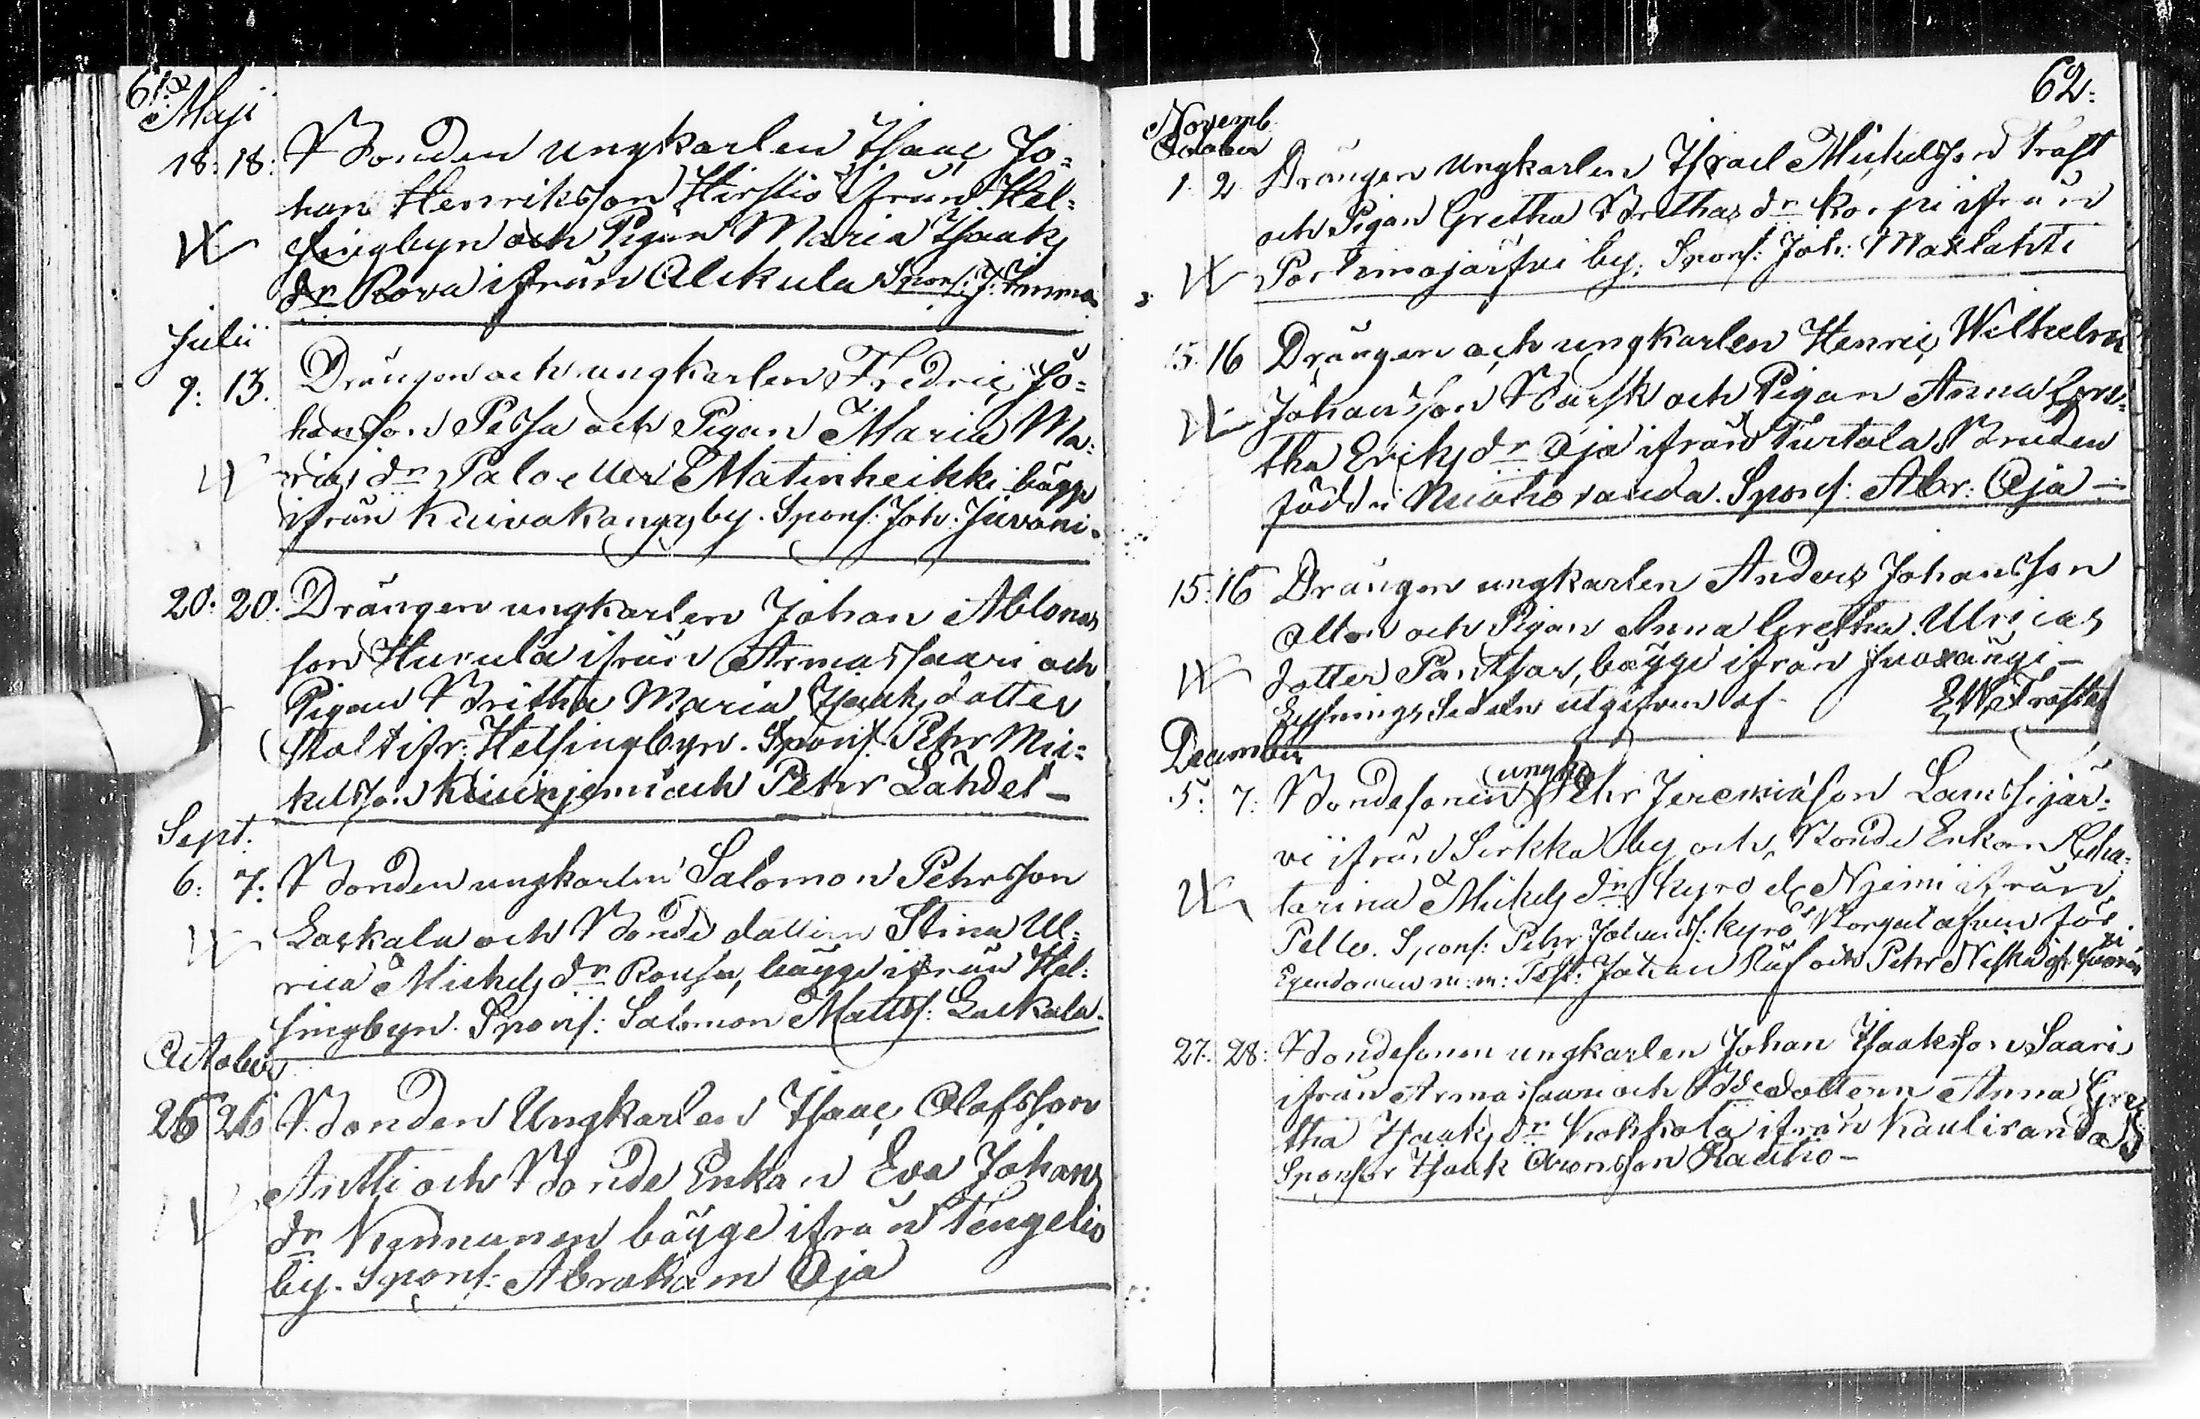 61:
Maji
18: 18: Bonden ungkarlen Isaac Jo=
han Henriksson Hirstio ifrån Hel=
singbyn och Pigan Maria Isaaks
dr Rova ifrån Alckula Spons: J:
Julii
9: 13. Drängen och ungkarlen Fredric Jo=
hansson Pessa och Pigan Maria Ma=
rias dr Palo eller Matinheikki bägge
ifrån Kuivakangas by. Spons: Joh: Juvani.
20: 20: Drängen ungkarlen Johan Ablons
son Hurula ifrån Armassaari och
Pigan Britha Maria Isaaks dotter
Stålt ifr: Helsingbyn. Spons: Pehr Mic=
kelsson och Pehr Lahdet –
Sept:
6: 7: Bonden ungkarlen Salomon Pehrsson
Laskala och Bonde dottern Stina Ul=
rica Mickels dr Rousu, bägge ifrån Hel=
singbyn. Spons: Salomon Matts: Laskala.
October
26 26 Bonden Ungkarlen Isaac Olofsson
Antti och Bonde Enkan Eva Johans
dr Kinnunen bägge ifrån Tengelio
by. Spons: Abraham Oja
62:
Novemb.
October
1. 2. Drängen Ungkarlen Israel Mickelsson Kraft
och Pigan Gretha Brithas dr Korpi ifrån
Portimojärfvi by: Spons: Joh: Maxlahti
15. 16 Drängen och ungkarlen Henric Wilhelm
Johansson Barsk och Pigan Anna Gre=
tha Eriks dr Oja ifrån Turtola Bruden
född i Muoho randa. Spons: Abr: Oja –
15. 16 Drängen ungkarlen Anders Johansson
Alton och Pigan Anna Gretha Ulricas
dotter Panthsar, bägge ifrån Juoxängi –
Lysnings Sedeln utgifven af
December
5. 7: Bondesonen ungk Pehr Jeremiasson Lamssijär=
vi ifrån Sirkka by och Bonde Enkan Catha=
rina Mickels dr Kyrö el Niemi ifrån
Pello. Spons: Pehr Johans: Kyrö Borgat äfven för
Egendomen m: m: Test: Johan Räf och Pehr Niska
27. 28: Bondesonen ungkarlen Johan Isaaksson Saari
ifrån Armassaari och Bdedottern Anna Gre
tha Isaaks dr Kokkola ifrån Kauliranda
Sponsor Isaak Aronsson Rautio –